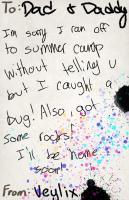 To: Dad & Daddy
I'm sorry I ran off
to summer camp
without telling u
but I caught a
bug! Also, got
some rocks!
I'll be home
soon!
From: Veylix